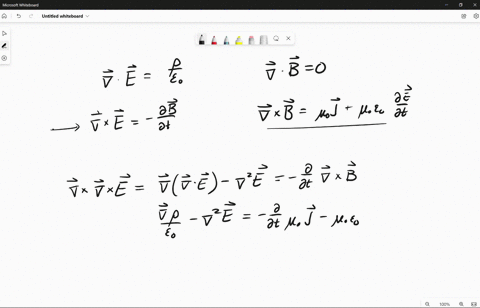 Microsoft Whiteboard
Untitled whiteboard
∇⃗ · E⃗ = ρ/ε₀
∇⃗ · B⃗ = 0
→ ∇⃗ × E⃗ = − ∂B⃗/∂t
∇⃗ × B⃗ = μ₀J⃗ + μ₀ε₀ ∂E⃗/∂t
∇⃗ × ∇⃗ × E⃗ = ∇⃗(∇⃗ · E⃗) − ∇²E⃗ = − ∂/∂t ∇⃗ × B⃗
∇⃗ρ/ε₀ − ∇²E⃗ = − ∂/∂t μ₀J⃗ − μ₀ε₀
100%